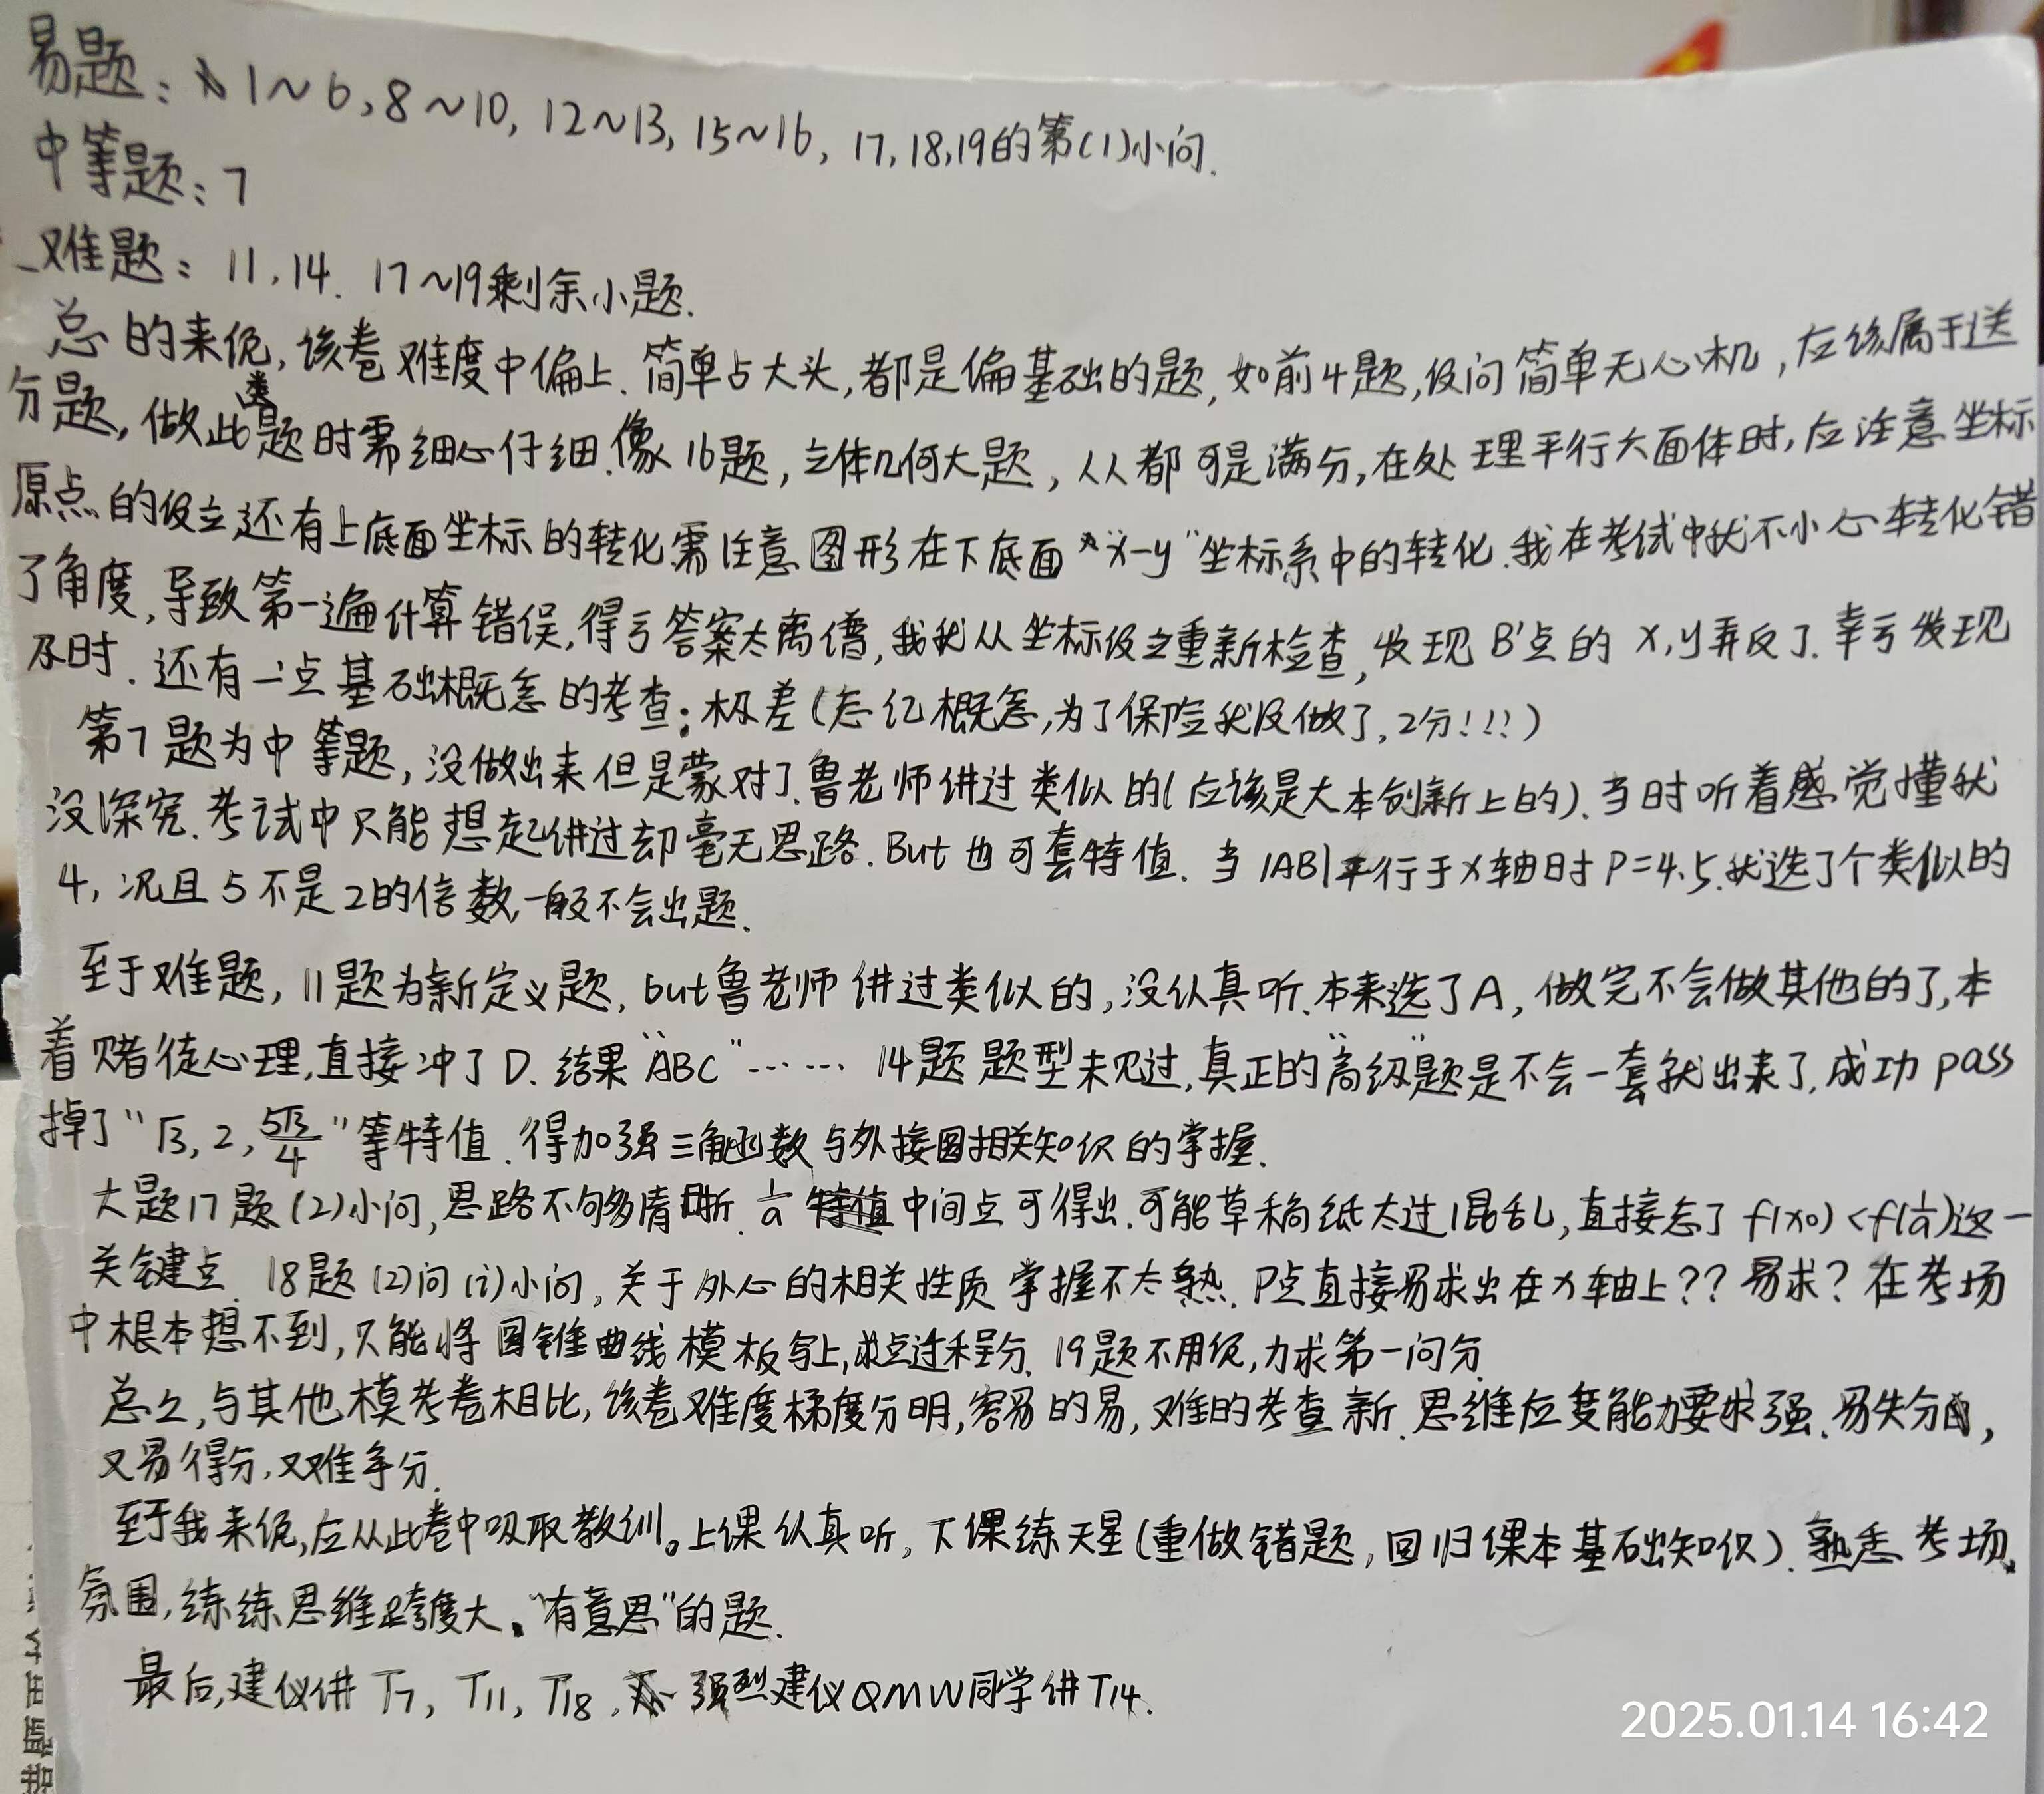 易题：1～6,8～10,12～13,15～16,17,18,19的第(1)小问.
中等题：7
难题：11,14.17～19剩余小题.
总的来说,该卷难度中偏上.简单占大头,都是偏基础的题,如前4题,设问简单无心机,应该属于送
分题,做此类题时需细心仔细.像16题,立体几何大题,人人都可是满分,在处理平行六面体时,应注意坐标
原点的设立还有上底面坐标的转化需注意图形在下底面"x-y"坐标系中的转化.我在考试中就不小心转化错
了角度,导致第一遍计算错误,得亏答案太离谱,我就从坐标设立重新检查,发现B'点的x,y弄反了.幸亏发现
及时.还有一点基础概念的考查:极差(忘记概念,为了保险我没做了,2分!!!)
第7题为中等题,没做出来但是蒙对了.鲁老师讲过类似的(应该是大本创新上的).当时听着感觉懂就
没深究.考试中只能想起讲过却毫无思路.But也可套特值.当|AB|平行于x轴时P=4.5.就选了个类似的
4,况且5不是2的倍数,一般不会出题.
至于难题,11题为新定义题,but鲁老师讲过类似的,没认真听.本来选了A,做完不会做其他的了,本
着赌徒心理,直接冲了D.结果"ABC"……14题题型未见过,真正的"高级"题是不会一套就出来了,成功pass
掉了"√3,2,5√3/4"等特值.得加强三角函数与外接圆相关知识的掌握.
大题17题(2)小问,思路不够清晰.1/a中间点可得出.可能草稿纸太过混乱,直接忘了f(x0)<f(1/a)这一
关键点.18题(2)问(i)小问,关于外心的相关性质掌握不太熟.P点直接易求出在x轴上??易求?在考场
中根本想不到,只能将圆锥曲线模板写上,求点过程分.19题不用说,力求第一问分.
总之,与其他模考卷相比,该卷难度梯度分明,容易的易,难的考查新.思维应变能力要求强.易失分,
又易得分,又难争分.
至于我来说,应从此卷中吸取教训。上课认真听,下课练天星(重做错题,回归课本基础知识).熟悉考场
氛围,练练思维跨度大、"有意思"的题.
最后,建议讲T7,T11,T18,强烈建议QMW同学讲T14.
2025.01.14 16:42